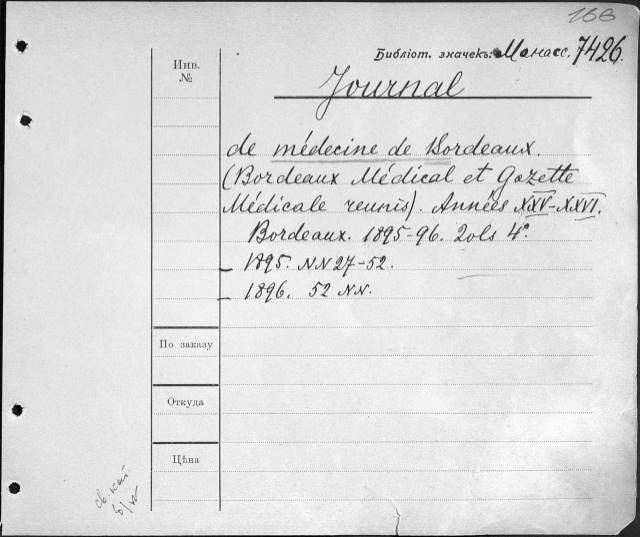 166
Библіот. значекъ: Манасс. 7426.
Инв.
№
Journal
de médecine de Bordeaux.
(Bordeaux Médical et Gazette
Médicale reunis). Années XXV-XXVI.
Bordeaux. 1895-96. 2 vols 4°.
– 1895. NN 27-52.
– 1896. 52 NN.
По заказу
Откуда
Цѣна